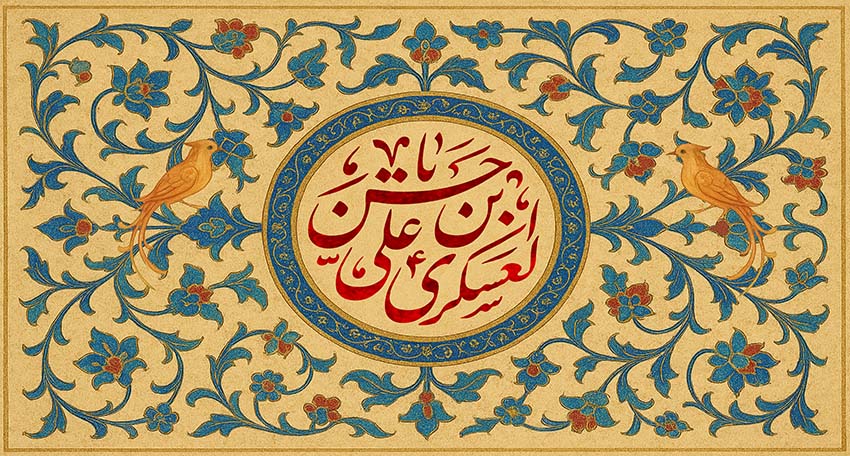 یا حسن ابن علی
العسکری